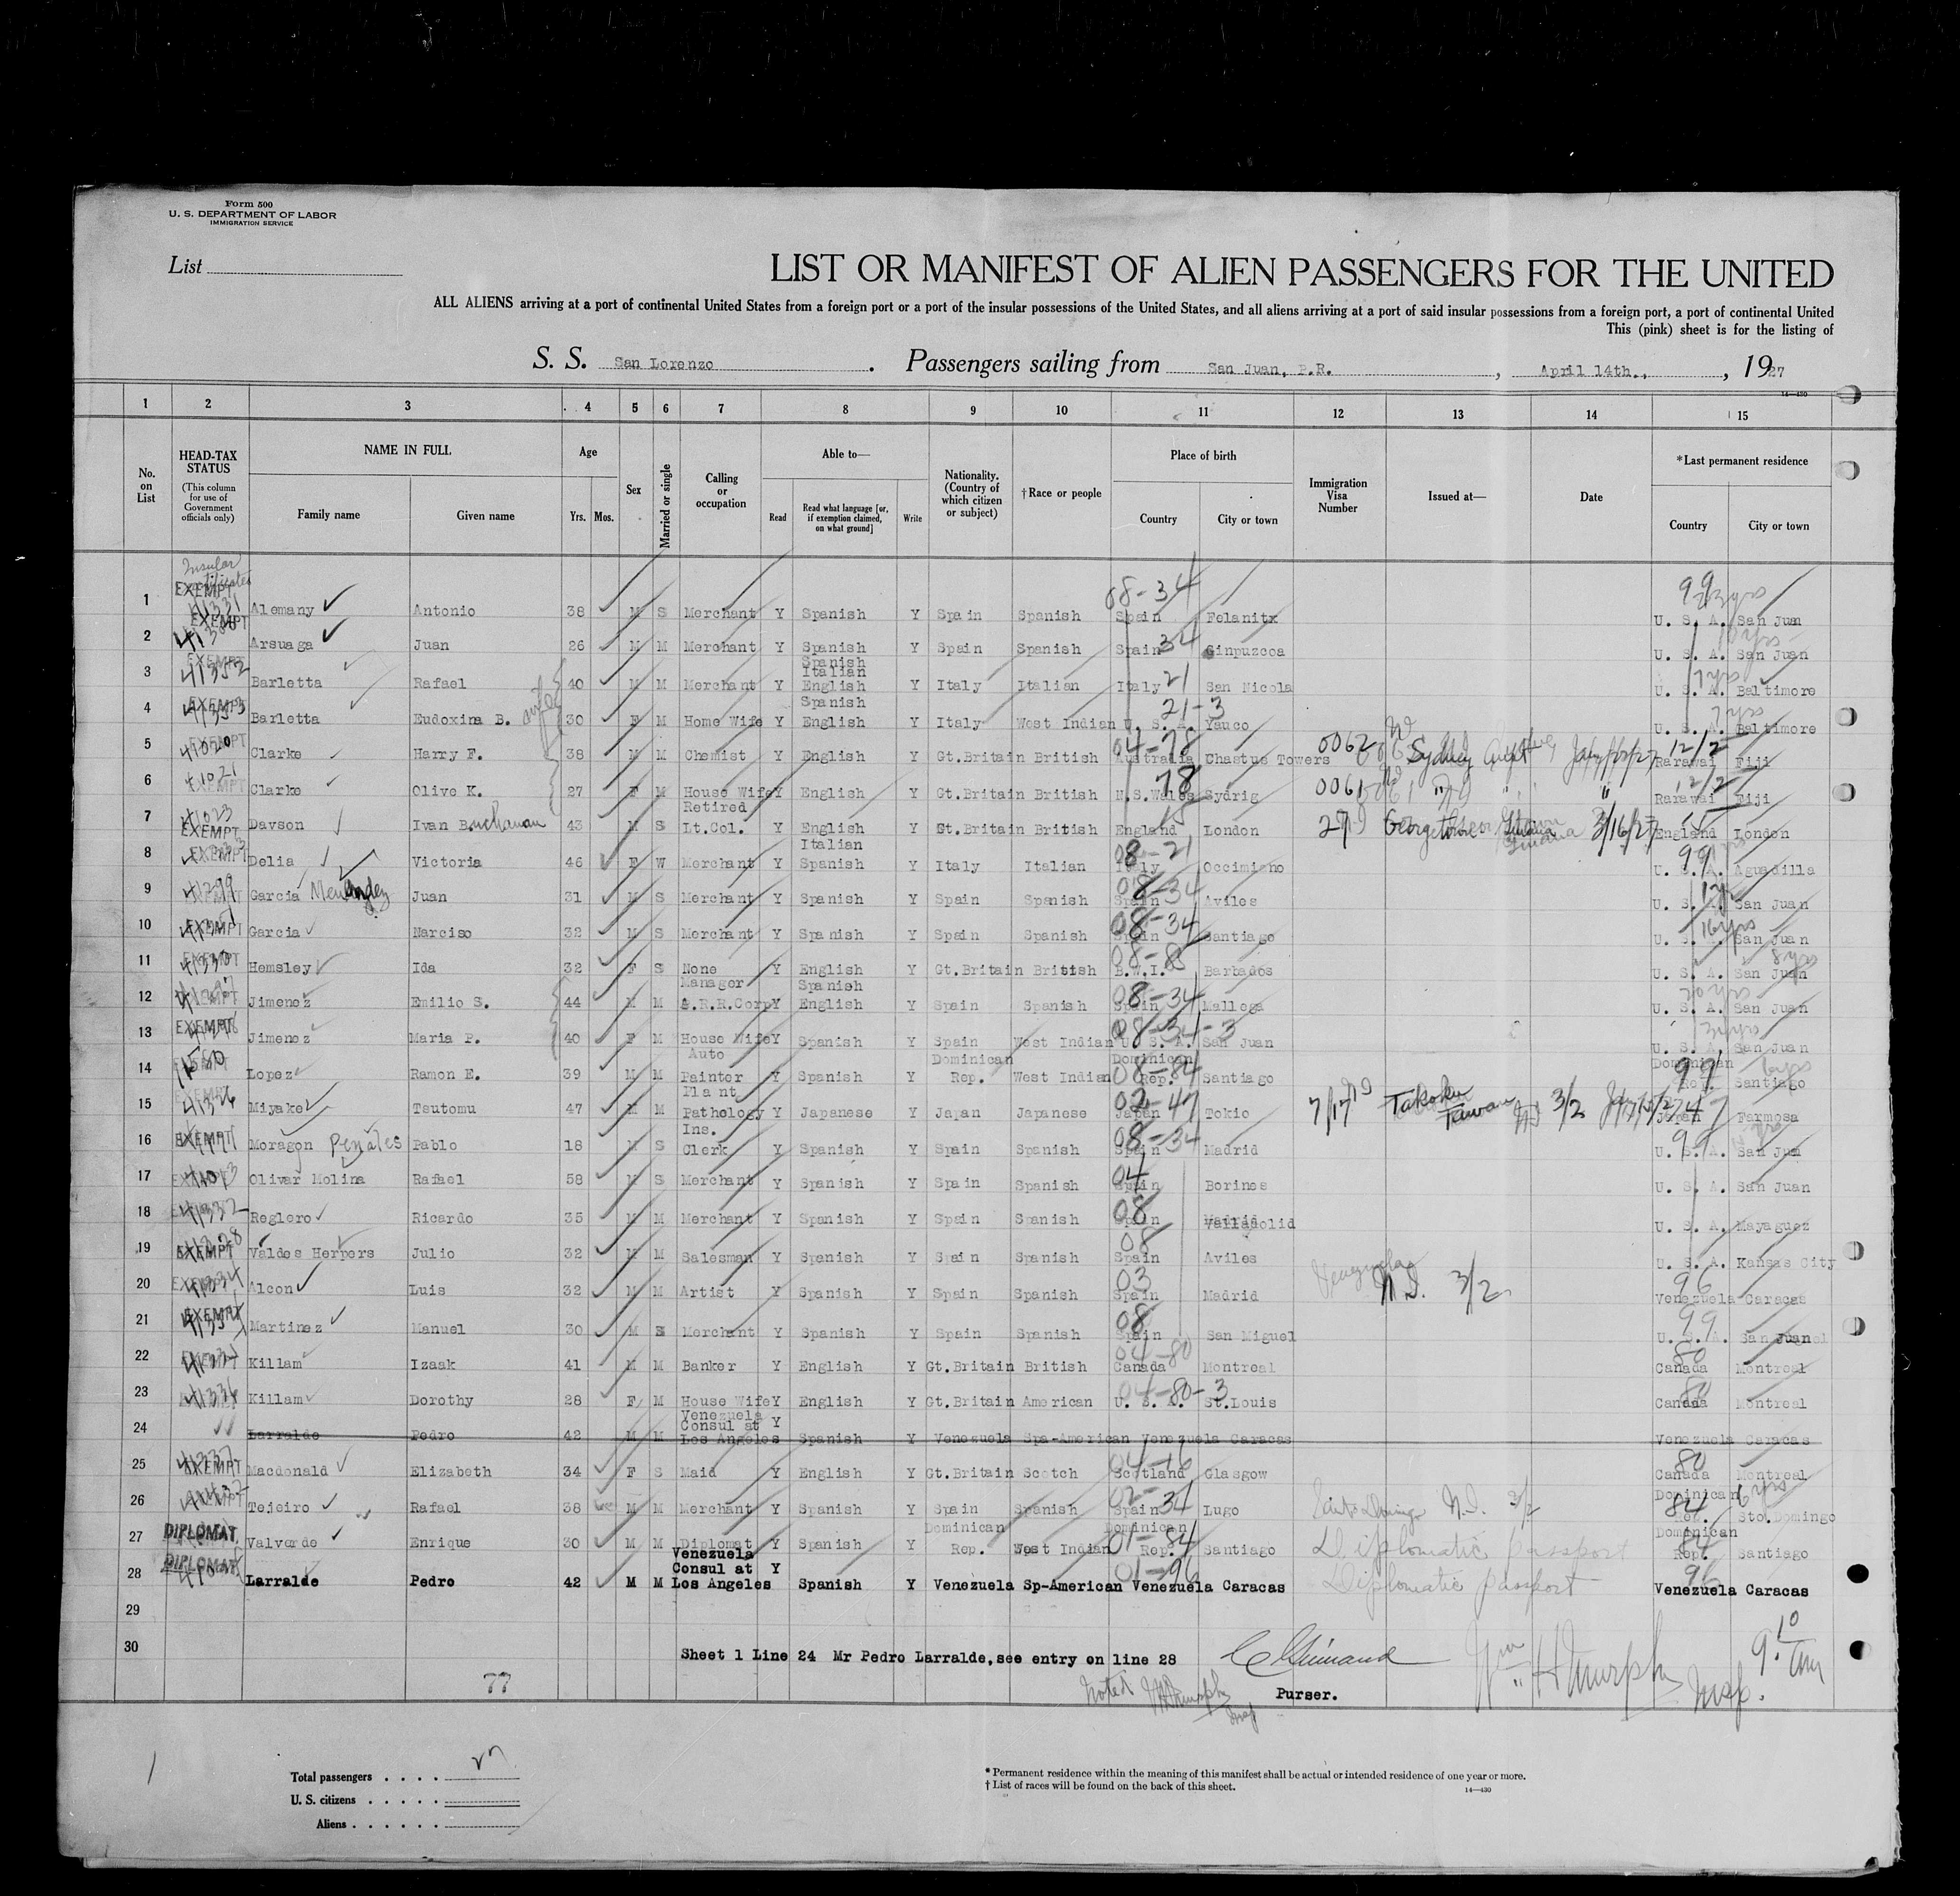 Form 500
U. S. DEPARTMENT OF LABOR
IMMIGRATION SERVICE
List
LIST OR MANIFEST OF ALIEN PASSENGERS FOR THE UNITED
ALL ALIENS arriving at a port of continental United States from a foreign port or a port of the insular possessions of the United States, and all aliens arriving at a port of said insular possessions from a foreign port, a port of continental United
This (pink) sheet is for the listing of
S. S. San Lorenzo. Passengers sailing from San Juan, P.R., April 14th., 1927
14—430
1 2 3 4 5 6 7 8 9 10 11 12 13 14 15
No. on List
HEAD-TAX STATUS
(This column for use of Government officials only)
NAME IN FULL
Family name Given name
Age
Yrs. Mos.
Sex
Married or single
Calling or occupation
Able to—
Read Read what language [or, if exemption claimed, on what ground] Write
Nationality. (Country of which citizen or subject)
†Race or people
Place of birth
Country City or town
Immigration Visa Number
Issued at—
Date
*Last permanent residence
Country City or town
Insular
1 EXEMPT Alemany Antonio 38 M S Merchant Y Spanish Y Spain Spanish 08-34 Spain Felanitx 99 U. S. A. San Juan
2 EXEMPT Arsuaga Juan 26 M M Merchant Y Spanish Y Spain Spanish Spain 34 Ginpuzcoa U. S. A. San Juan
3 EXEMPT 41352 Barletta Rafael 40 M M Merchant Y Spanish Italian English Y Italy Italian Italy 21 San Nicola 7yrs U. S. A. Baltimore
4 EXEMPT 41353 Barletta Eudoxina B. wife 30 F M Home Wife Y Spanish English Y Italy West Indian 21-3 U. S. A. Yauco 7yrs U. S. A. Baltimore
5 EXEMPT 41020 Clarke Harry F. 38 M M Chemist Y English Y Gt.Britain British 04-78 Australia Chastus Towers 0062 Sydney 12/2 Rarawai Fiji
6 EXEMPT 41021 Clarke Olive K. 27 F M House Wife Y English Y Gt.Britain British 78 N.S.Wales Sydrig 0061 " " 12/2 Rarawai Fiji
7 41023 EXEMPT Davson Ivan Buchanan 43 M S Retired Lt.Col. Y English Y Gt.Britain British 15 England London Georgetown 3/16/27 England London
8 EXEMPT Delia Victoria 46 F W Merchant Y Italian Spanish Y Italy Italian 08-21 Italy Occimiano 99 U. S. A. Aguadilla
9 41299 EXEMPT Garcia Menendez Juan 31 M S Merchant Y Spanish Y Spain Spanish 08-34 Spain Aviles U. S. A. San Juan
10 EXEMPT Garcia Narciso 32 M S Merchant Y Spanish Y Spain Spanish 08-34 Spain Santiago 16yrs U. S. A. San Juan
11 EXEMPT 41330 Hemsley Ida 32 F S None Y English Y Gt.Britain British 08-85 B.W.I. Barbados 8yrs U. S. A. San Juan
12 EXEMPT Jimenez Emilio S. 44 M M Manager A.R.R.Corp Y Spanish English Y Spain Spanish 08-34 Spain Mallega 20 yrs U. S. A. San Juan
13 EXEMPT Jimenez Maria P. 40 F M House Wife Y Spanish Y Spain West Indian 08-34-3 U. S. A. San Juan U. S. A. San Juan
14 Lopez Ramon E. 39 M M Auto Painter Y Spanish Y Dominican Rep. West Indian Dominican 08-84 Rep. Santiago Dominican 99 Rep. Santiago
15 EXEMPT 41326 Miyake Tsutomu 47 M M Plant Pathology Y Japanese Y Japan Japanese 02-47 Japan Tokio Taiwan 3/2 Japan 47 Farmosa
16 EXEMPT Moragon Penales Pablo 18 M S Ins. Clerk Y Spanish Y Spain Spanish 08-34 Spain Madrid 99 U. S. A. San Juan
17 EXEMPT Olivar Molina Rafael 58 M S Merchant Y Spanish Y Spain Spanish 04 Spain Borines U. S. A. San Juan
18 EXEMPT 41332 Reglero Ricardo 35 M M Merchant Y Spanish Y Spain Spanish 08 Spain Valladolid U. S. A. Mayaguez
19 EXEMPT Valdes Herpers Julio 32 M M Salesman Y Spanish Y Spain Spanish 08 Spain Aviles U. S. A. Kansas City
20 EXEMPT 41334 Alcon Luis 32 M M Artist Y Spanish Y Spain Spanish 03 Spain Madrid Venezuela N.I. 3/2 96 Venezuela Caracas
21 EXEMPT Martinez Manuel 30 M M Merchant Y Spanish Y Spain Spanish 08 Spain San Miguel 99 U. S. A. San Juan
22 EXEMPT Killam Izaak 41 M M Banker Y English Y Gt.Britain British 04-80 Canada Montreal 80 Canada Montreal
23 41336 Killam Dorothy 28 F M House Wife Y English Y Gt.Britain American 04-80-3 U. S. A. St.Louis 80 Canada Montreal
24 Larralde Pedro 42 M M Venezuela Consul at Los Angeles Y Spanish Y Venezuela Spa-American Venezuela Caracas Venezuela Caracas
25 41337 EXEMPT Macdonald Elizabeth 34 F S Maid Y English Y Gt.Britain Scotch 04-16 Scotland Glasgow 80 Canada Montreal
26 EXEMPT Tejeiro Rafael 38 M M Merchant Y Spanish Y Spain Spanish 02-34 Spain Lugo Santo Domingo N.I. 3/2 Dominican 84 Rep. 6 yrs Sto.Domingo
27 DIPLOMAT. Valverde Enrique 30 M M Diplomat Y Spanish Y Dominican Rep. West Indian Dominican 01-84 Rep. Santiago Diplomatic passport Dominican 84 Rep. Santiago
28 DIPLOMAT. Larralde Pedro 42 M M Venezuela Consul at Los Angeles Y Spanish Y Venezuela Sp-American 01-96 Venezuela Caracas Diplomatic passport 96 Venezuela Caracas
29
30 Sheet 1 Line 24 Mr Pedro Larralde,see entry on line 28
77
Noted
Purser.
Wm H Murphy Insp.
9.10 am
1
Total passengers 27
U. S. citizens
Aliens
* Permanent residence within the meaning of this manifest shall be actual or intended residence of one year or more.
† List of races will be found on the back of this sheet.
14—430